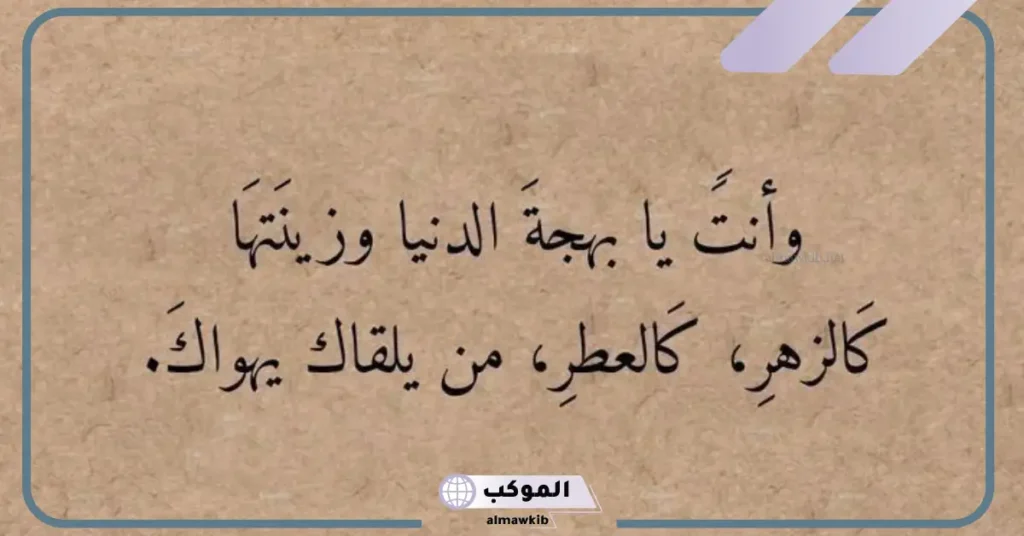 وأنتًَ يا بهجةَ الدنيا وزينَتهَا
كَالزهرِ، كَالعطرِ، من يلقاك يهواكَ.
الموكب
almawkib